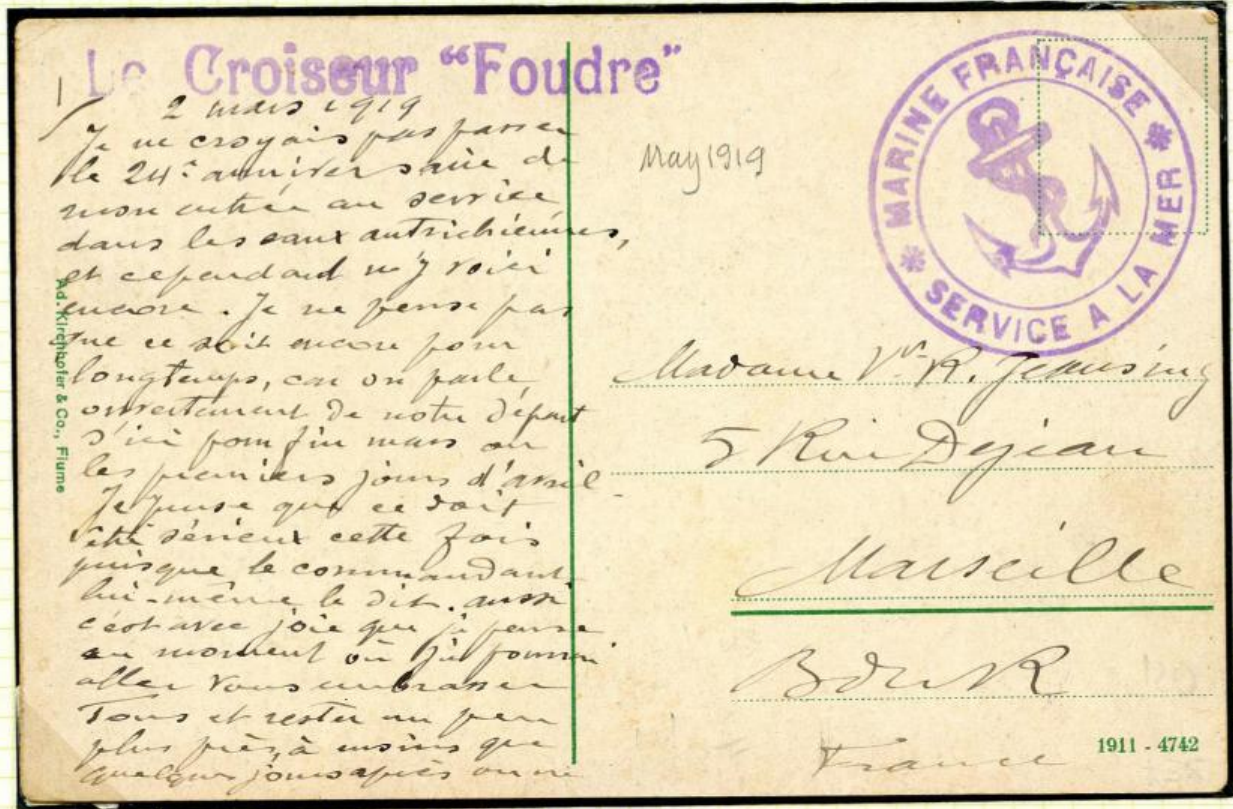 Le Croiseur “Foudre”
MARINE FRANÇAISE
SERVICE A LA MER
1/
2 mars 1919
Je ne croyais pas passer
le 24e anniversaire de
mon entrée au service
dans les eaux autrichiennes,
et cependant m'y voici
encore. Je ne pense pas
que ce soit encore pour
longtemps, car on parle
ouvertement de notre départ
d'ici pour fin mars ou
les premiers jours d'avril.
Je pense que ce doit
être sérieux cette fois
puisque le commandant
lui-même le dit. aussi
c'est avec joie que je pense
au moment où je pourrai
aller vous embrasser
Tous et rester un peu
plus près, à moins que
quelques jours après on ne
Ad. Kirchhofer & Co., Fiume
May 1919
Madame Vve R.
5 Rue Dejean
Marseille
B du R
France
1911 - 4742